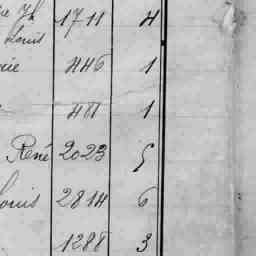 1711 4
Louis
446 1
411 1
René 2023 5
Louis 2814 6
1288 3